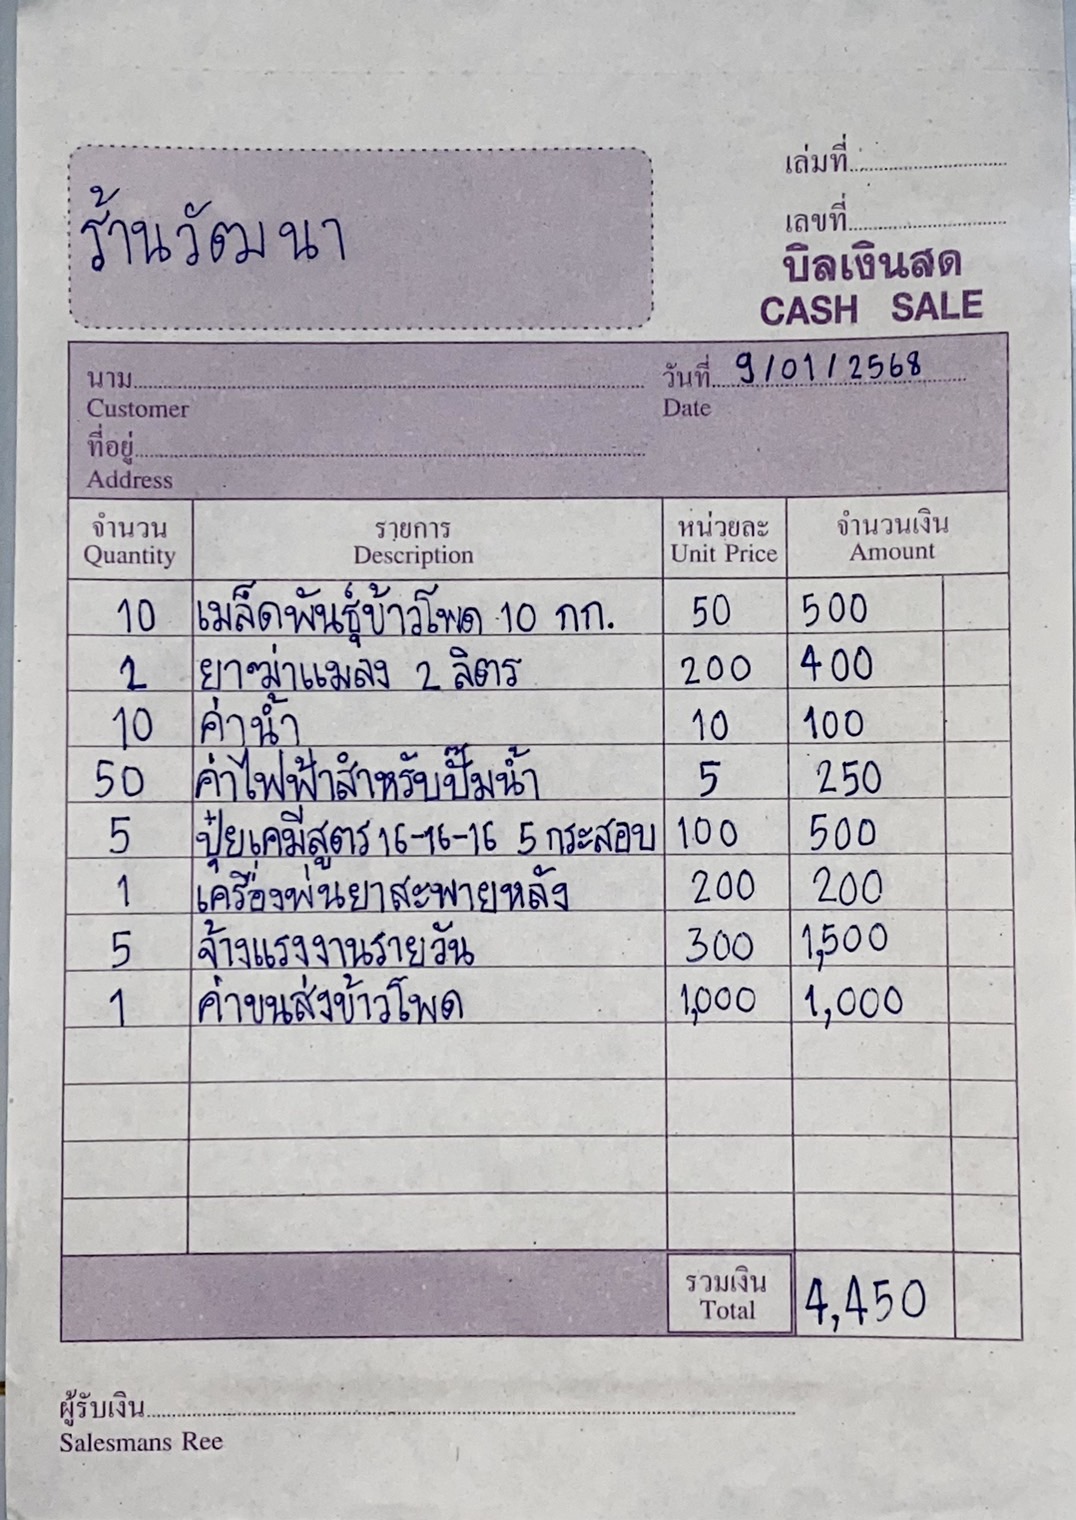 ร้านวัฒนา
เล่มที่
เลขที่
บิลเงินสด
CASH SALE
นาม
Customer
วันที่ 9/01/2568
Date
ที่อยู่
Address
จำนวน รายการ หน่วยละ จำนวนเงิน
Quantity Description Unit Price Amount
10 เมล็ดพันธุ์ข้าวโพด 10 กก. 50 500
2 ยาฆ่าแมลง 2 ลิตร 200 400
10 ค่าน้ำ 10 100
50 ค่าไฟฟ้าสำหรับปั๊มน้ำ 5 250
5 ปุ๋ยเคมีสูตร 16-16-16 5 กระสอบ 100 500
1 เครื่องพ่นยาสะพายหลัง 200 200
5 จ้างแรงงานรายวัน 300 1,500
1 ค่าขนส่งข้าวโพด 1,000 1,000
รวมเงิน 4,450
Total
ผู้รับเงิน
Salesmans Ree